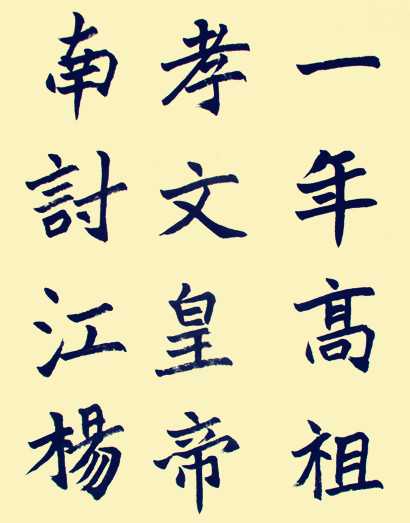 一年髙祖
孝文皇帝
南討江楊